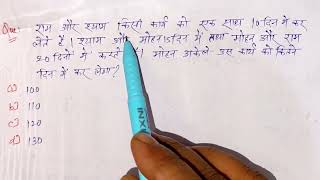 Que: राम और श्याम किसी कार्य को एक साथ 10 दिन में कर
लेते हैं। श्याम और मोहन 15 दिन में तथा मोहन और राम
20 दिनों में करते हैं। मोहन अकेले उस कार्य को कितने
दिन में कर लेगा?
a) 100
b) 110
c) 120
d) 130
LINXON